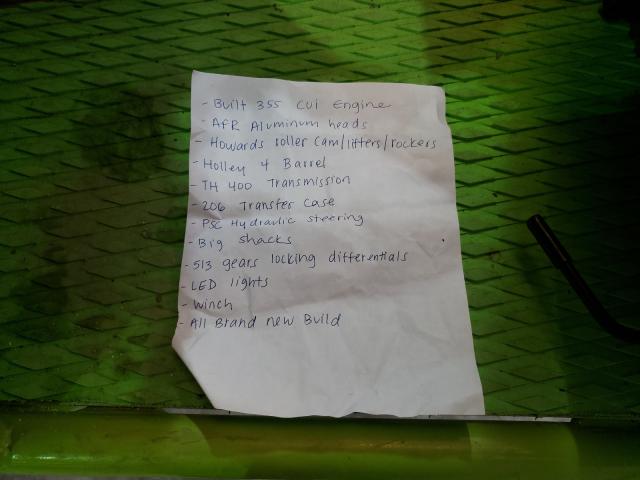 - Built 355 cui Engine
- AFR Aluminum heads
- Howards roller cam/lifters/rockers
- Holley 4 Barrel
- TH 400 Transmission
- 206 Transfer case
- PSC Hydraulic steering
- Big shacks
- 513 gears locking differentials
- LED lights
- Winch
- All Brand new Build